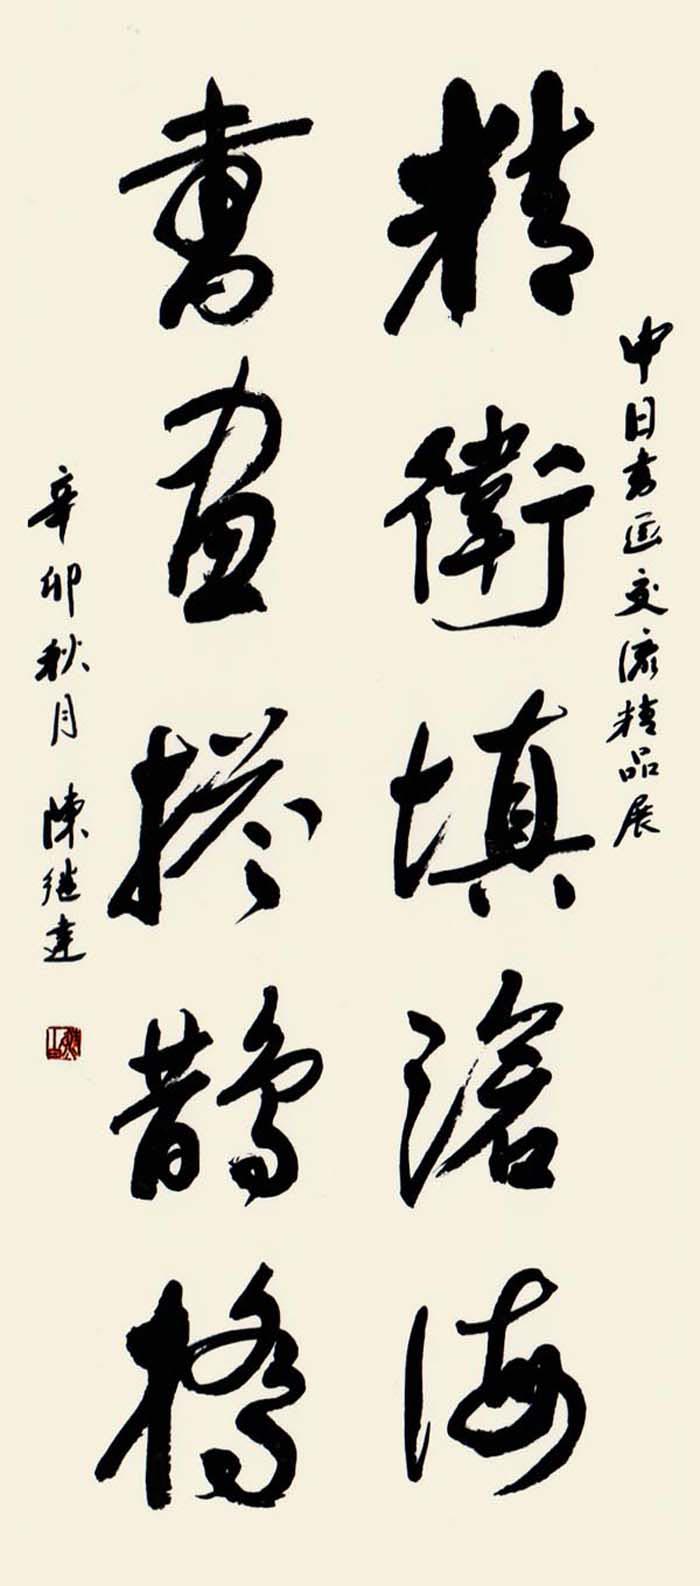 中日书画交流精品展
精衛填滄海
書畫搭鹊橋
辛卯秋月 陳继達